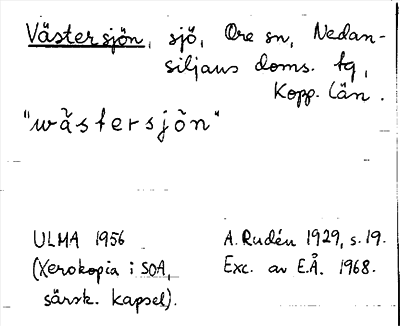 Västersjön, sjö, Ore sn, Nedan-
siljans doms. tg,
Kopp. län.
"wästersjön"
ULMA 1956
(Xerokopia i SOA,
särsk. kapsel).
A. Rudén 1929, s. 19.
Exc. av E.Å. 1968.